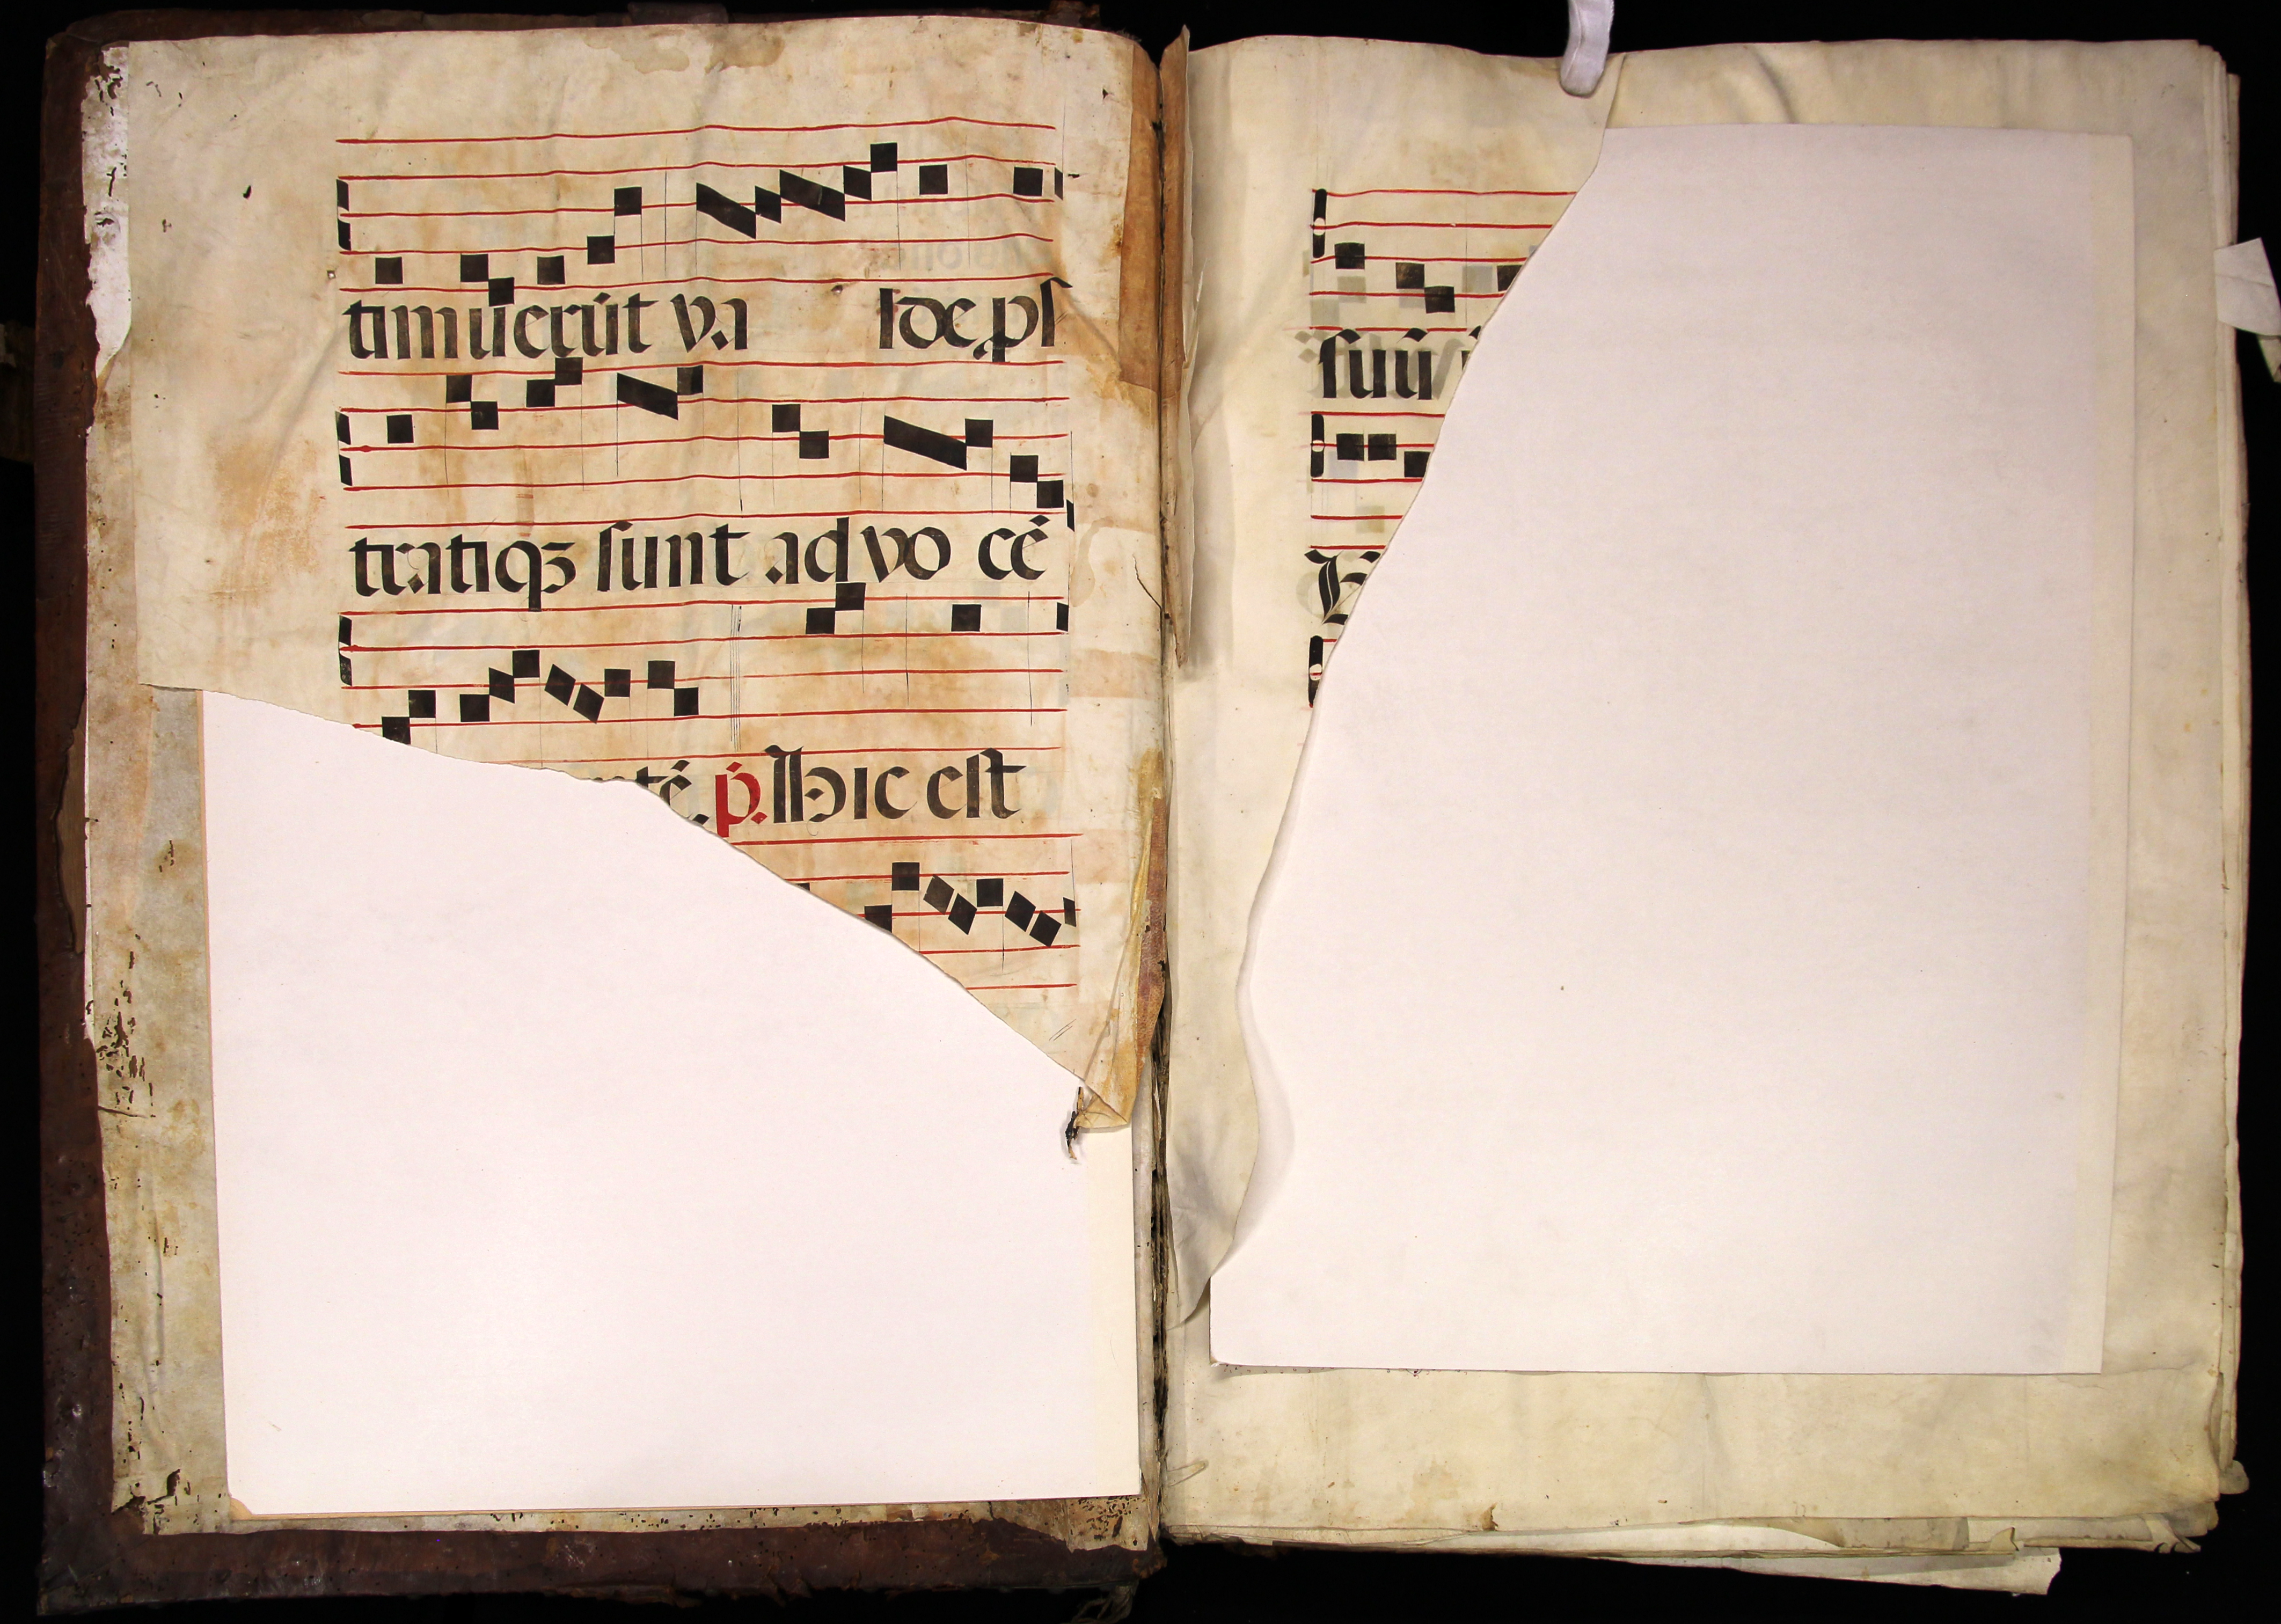 timuerūt va lde, pſ
tratiqȝ ſunt ad vo cē
tē. p̄. Hic eſt
ſuū